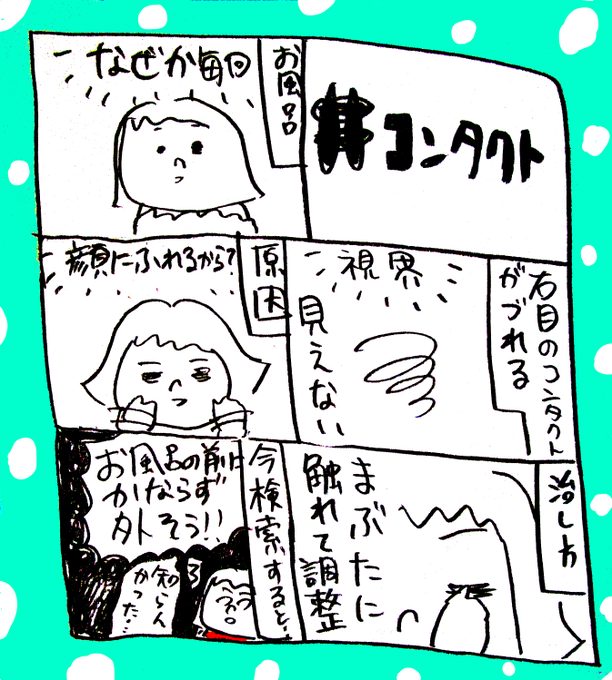 コンタクト
お風呂
なぜか毎回
右目のコンタクト
がづれる
視界
見えない
原因
顔にふれるから?
治し方
まぶたに
触れて調整
今検索すると…
お風呂の前は
かならず
外そう!!
知らん
かった…